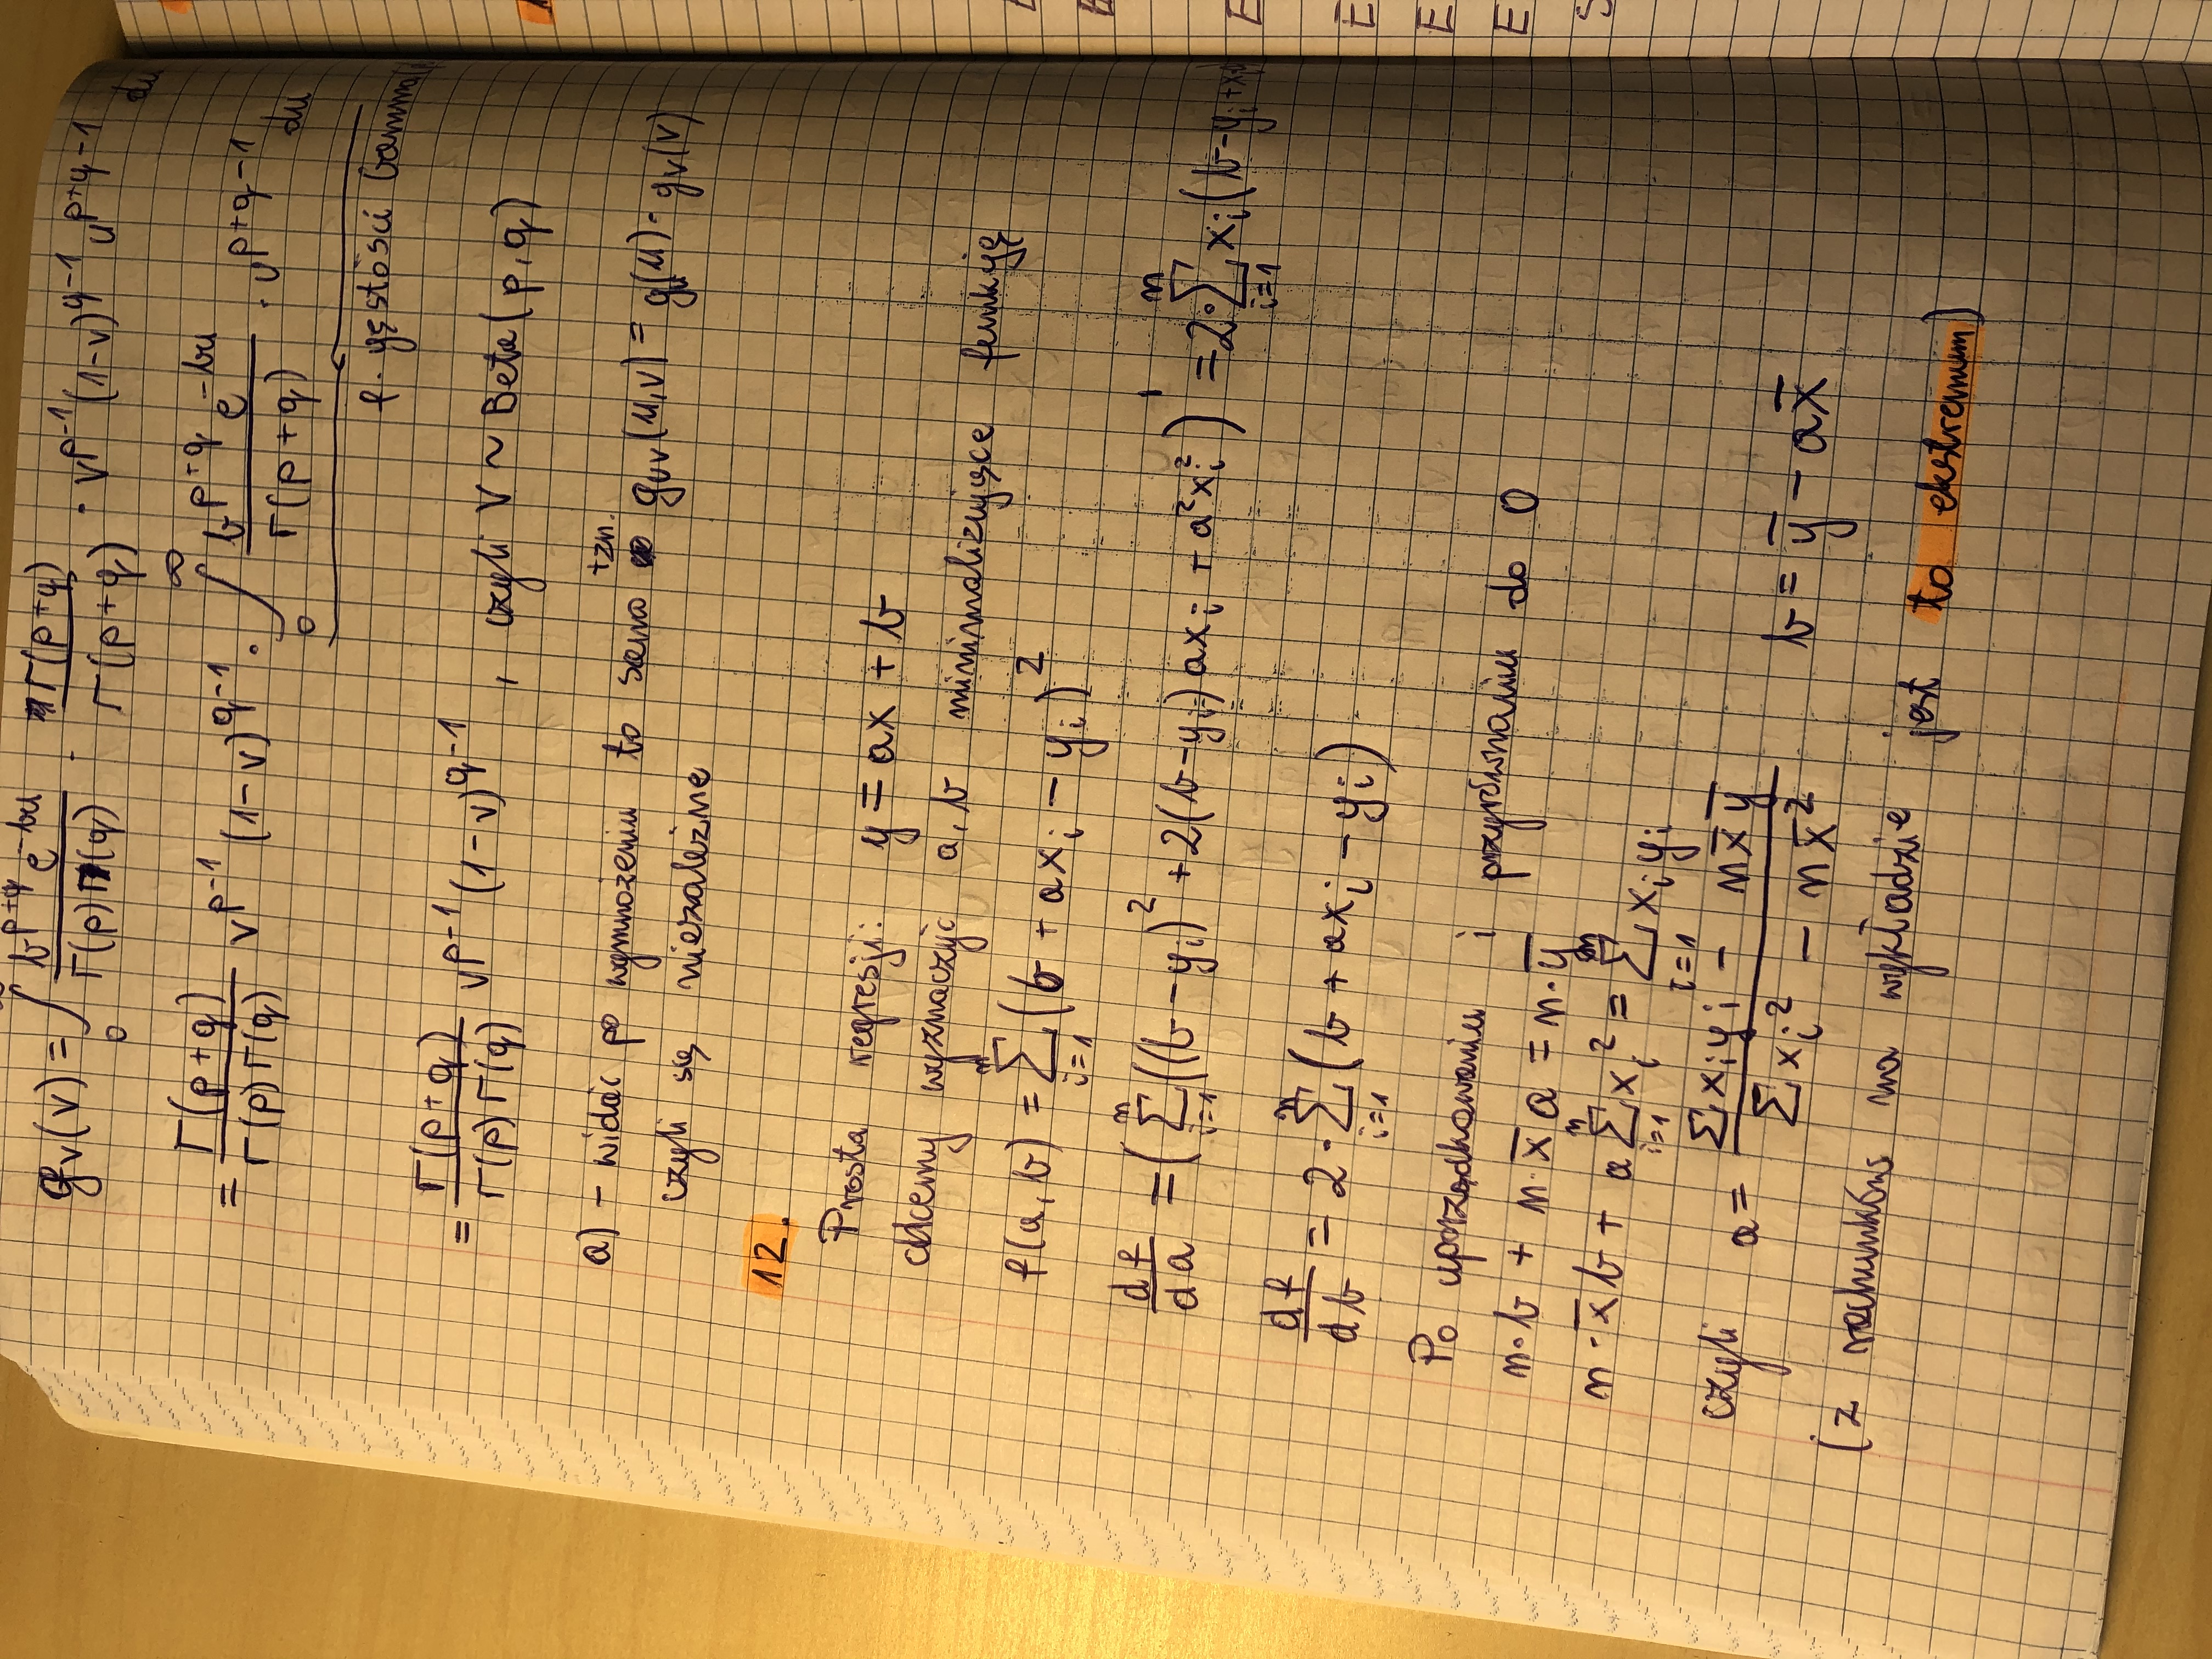 g_V(v) = ∫_0^∞ \frac{b^{p+q} e^{-bu}}{Γ(p)Γ(q)} · \frac{Γ(p+q)}{Γ(p+q)} · v^{p-1} (1-v)^{q-1} u^{p+q-1} du
= \frac{Γ(p+q)}{Γ(p)Γ(q)} v^{p-1} (1-v)^{q-1} · ∫_0^∞ \frac{b^{p+q} e^{-bu}}{Γ(p+q)} · u^{p+q-1} du
f. gęstości Gamma(
= \frac{Γ(p+q)}{Γ(p)Γ(q)} v^{p-1} (1-v)^{q-1} , czyli V ~ Beta(p,q)
a) - widać po wymnożeniu to samo tzn. g_{UV}(u,v) = g_U(u) · g_V(v)
czyli są niezależne
12.
Prosta regresji: y = ax + b
chcemy wyznaczyć a, b minimalizujące funkję
f(a, b) = ∑_{i=1}^n (b + ax_i - y_i)^2
\frac{df}{da} = (∑_{i=1}^n ((b - y_i)^2 + 2(b - y_i) ax_i + a^2 x_i^2)' = 2·∑_{i=1}^n x_i (b - y_i + x_i
\frac{df}{db} = 2·∑_{i=1}^n (b + ax_i - y_i)
Po uporządkowaniu i przyrównaniu do 0
n·b + n·x̄ a = n·ȳ
n·x̄ b + a ∑_{i=1}^n x_i^2 = ∑_{i=1}^n x_i y_i
czyli a = \frac{∑ x_i y_i - n x̄ ȳ}{∑ x_i^2 - n x̄^2} b = ȳ - a x̄
(z rachunków na wykładzie jest to ekstremum)